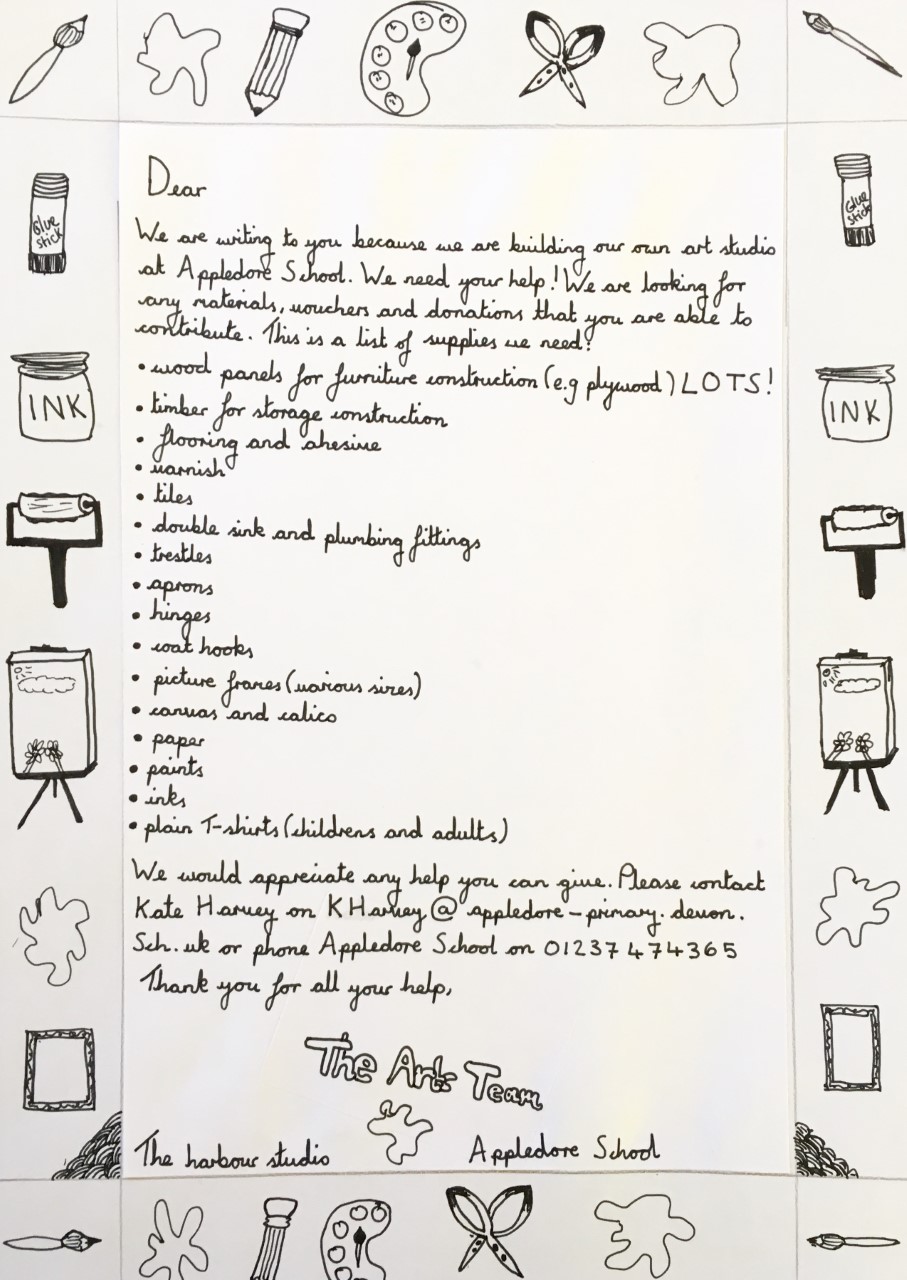 Dear
We are writing to you because we are building our own art studio
at Appledore School. We need your help! We are looking for
any materials, vouchers and donations that you are able to
contribute. This is a list of supplies we need:
• wood panels for furniture construction (e.g plywood) LOTS!
• timber for storage construction
• flooring and ahesive
• varnish
• tiles
• double sink and plumbing fittings
• trestles
• aprons
• hinges
• coat hooks
• picture frames (various sizes)
• canvas and calico
• paper
• paints
• inks
• plain T-shirts (childrens and adults)
We would appreciate any help you can give. Please contact
Kate Harvey on KHarvey@appledore-primary.devon.
Sch.uk or phone Appledore School on 01237 474365
Thank you for all your help,
The Arts Team
The harbour studio Appledore School
Glue
stick
INK
Glue
stick
INK